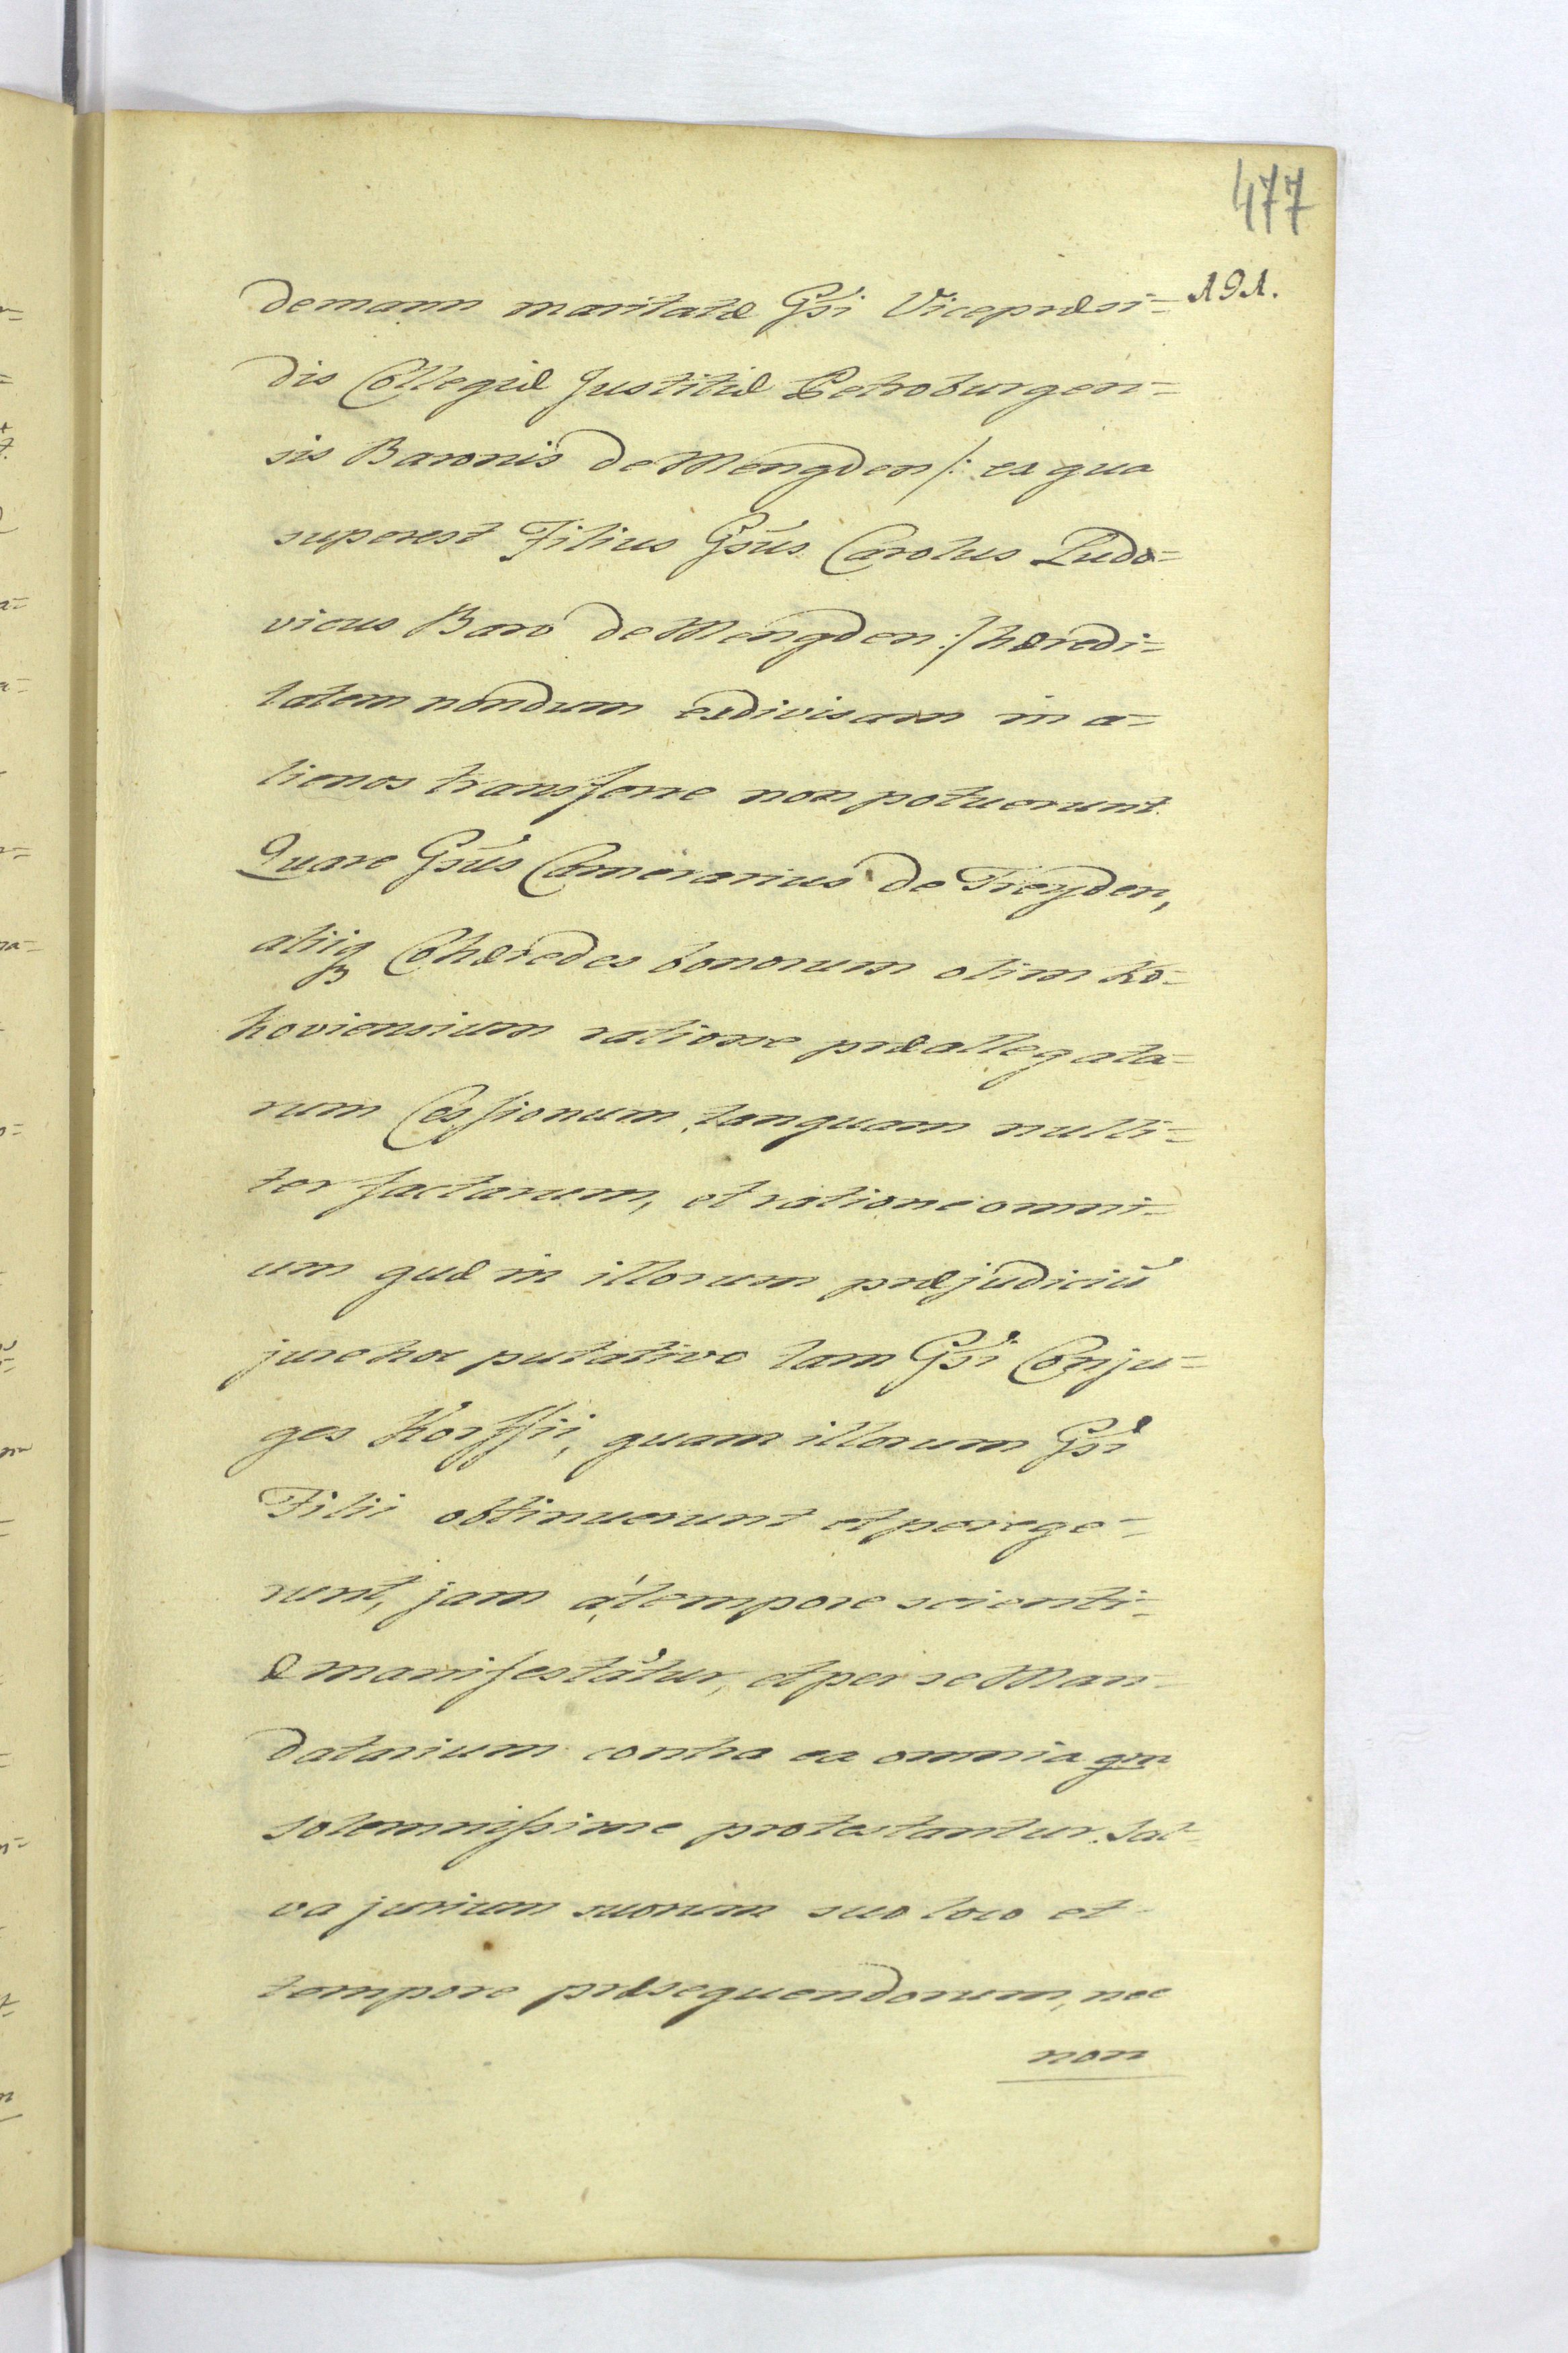 477
191.
demann maritatæ Gsi Vicepræsi=
dis Collegiæ Justitiæ Petroburgen=
sis Baronis de Mengden /: ex qua
superest Filius Gsus Carolus Ludo=
vicus Baro de Mengden :/ hæredi=
tatem nondum exdivisam in a=
lienos transferre non potuerunt.
Quare Gsus Camerarius de Treyden,
aliiq Cohæredes bonorum olim Ko=
hoviensium ratione præallegata=
rum Cessionum, tanquam nulli=
ter factarum, et ratione omni=
um quæ in illorum præjudiciū
jure hoc putativo tam Gsi Conju=
ges Korffii, quam illorum Gsi
Filii obtinuerunt et perege=
runt, jam à tempore scienti=
æ manifestātur, et per se Man=
datarium contra ea omnia qm
solemnissime protestantur. Sal=
va jurium suorum suo loco et
tempore præsequendorum, nec
non